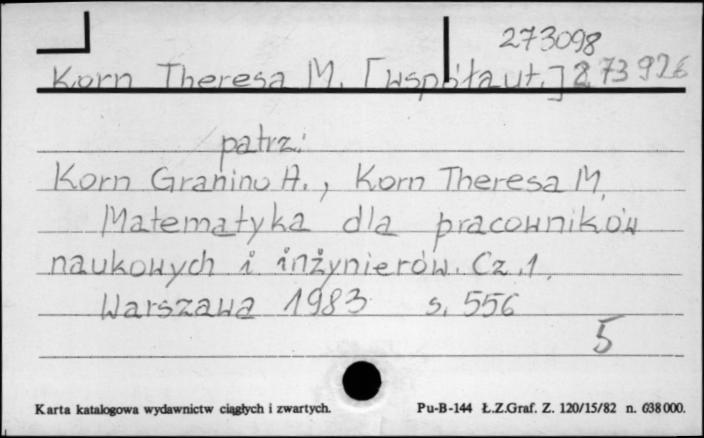 273098
Korn Theresa M. [współaut.] 273926
patrz:
Korn Granino A., Korn Theresa M.
Matematyka dla pracowników
naukowych i inżynierów. Cz. 1.
Warszawa 1983 s. 556
5
Karta katalogowa wydawnictw ciągłych i zwartych. Pu-B-144 Ł.Z.Graf. Z. 120/15/82 n. 638000.